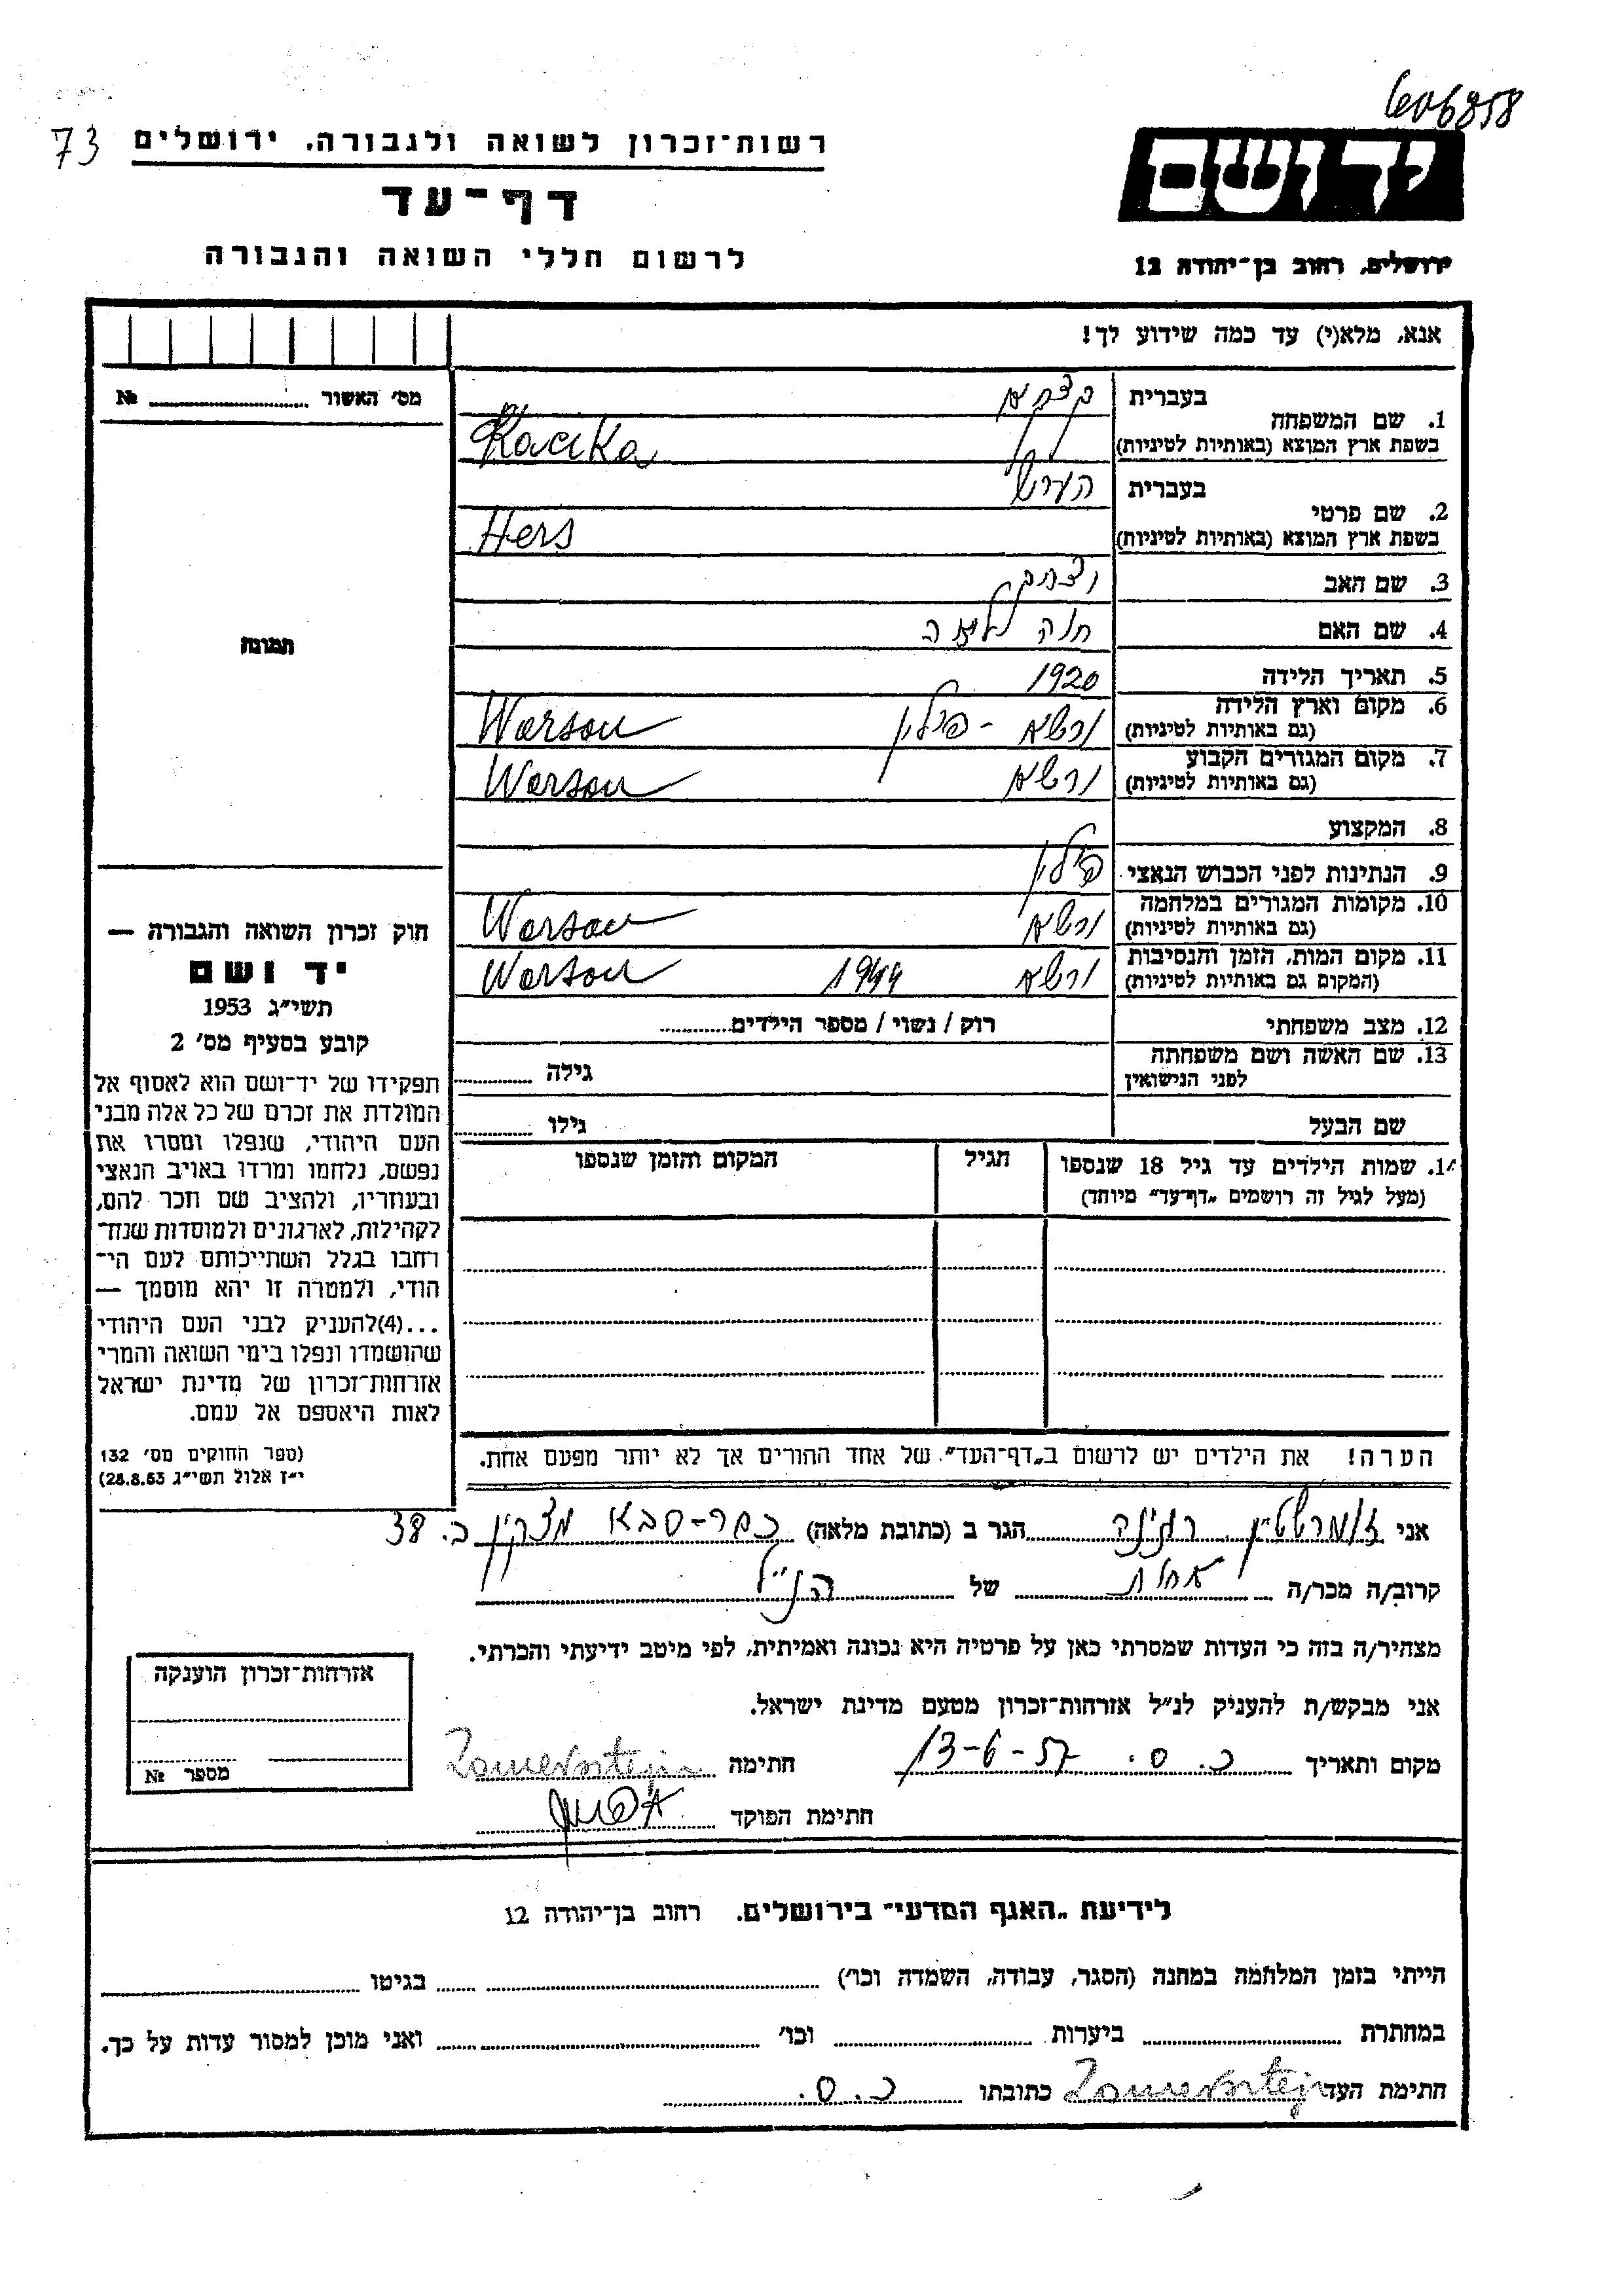 606858
73
רשות־זכרון לשואה ולגבורה, ירושלים
דף־עד
לרשום חללי השואה והגבורה
יד ושם
ירושלים, רחוב בן־יהודה 12
אנא, מלא(י) עד כמה שידוע לך!
מס׳ האשור № 
תמונה
חוק זכרון השואה והגבורה —
יד ושם
תשי״ג 1953
קובע בסעיף מס׳ 2
תפקידו של יד־ושם הוא לאסוף אל
המולדת את זכרם של כל אלה מבני
העם היהודי, שנפלו ומסרו את
נפשם, נלחמו ומרדו באויב הנאצי
ובעוזריו, ולהציב שם וזכר להם,
לקהילות, לארגונים ולמוסדות שנח־
רחבו בגלל השתייכותם לעם הי־
הודי, ולמטרה זו יהא מוסמך —
...(4)להעניק לבני העם היהודי
שהושמדו ונפלו בימי השואה והמרי
אזרחות־זכרון של מדינת ישראל
לאות היאספם אל עמם.
(ספר החוקים מס׳ 132
י״ז אלול תשי״ג 28.8.53)
1. שם המשפחה
בעברית
בשפת ארץ המוצא (באותיות לטיניות) Kacika
2. שם פרטי
בעברית הערש
בשפת ארץ המוצא (באותיות לטיניות) Hers
3. שם האב
4. שם האם חנה
5. תאריך הלידה 1920
6. מקום וארץ הלידה ורשא - פולין Warsau
(גם באותיות לטיניות)
7. מקום המגורים הקבוע ורשא Warsau
(גם באותיות לטיניות)
8. המקצוע
9. הנתינות לפני הכבוש הנאצי פולין
10. מקומות המגורים במלחמה ורשא Warsau
(גם באותיות לטיניות)
11. מקום המות, הזמן והנסיבות ורשא 1944 Warsau
(המקום גם באותיות לטיניות)
12. מצב משפחתי רוק / נשוי / מספר הילדים
13. שם האשה ושם משפחתה גילה
לפני הנישואין
שם הבעל גילו
14. שמות הילדים עד גיל 18 שנספו הגיל המקום והזמן שנספו
(מעל לגיל זה רושמים „דף־עד״ מיוחד)
הערה! את הילדים יש לרשום ב„דף־העד״ של אחד ההורים אך לא יותר מפעם אחת.
אני זומרשטיין רגינה הגר ב (כתובת מלאה) כפר-סבא 38
קרוב/ה מכר/ה אחות של הנ״ל
מצהיר/ה בזה כי העדות שמסרתי כאן על פרטיה היא נכונה ואמיתית, לפי מיטב ידיעתי והכרתי.
אני מבקש/ת להעניק לנ״ל אזרחות־זכרון מטעם מדינת ישראל.
מקום ותאריך כ. ס. 13-6-57 חתימה Zomersztejn
חתימת הפוקד
אזרחות־זכרון הוענקה
מספר №
לידיעת „האגף המדעי״ בירושלים, רחוב בן־יהודה 12
הייתי בזמן המלחמה במחנה (הסגר, עבודה, השמדה וכו׳) בגיטו
במחתרת ביערות וכו׳ ואני מוכן למסור עדות על כך.
חתימת העד Zomersztejn כתובתו כ. ס.